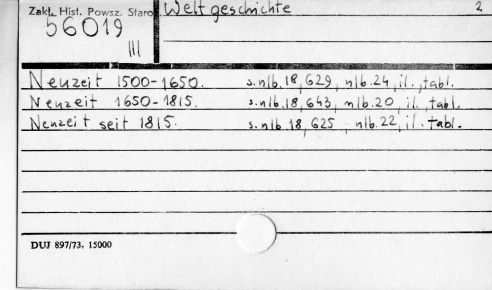 Zakł. Hist. Powsz. Staro
Weltgeschichte 2
56019
III
Neuzeit 1500-1650. s.nlb.18,629, nlb.24, il., tabl.
Neuzeit 1650-1815. s.nlb.18,643, nlb.20, il., tabl.
Neuzeit seit 1815. s.nlb 18,625, nlb.22, il. tabl.
DUJ 897/73. 15000